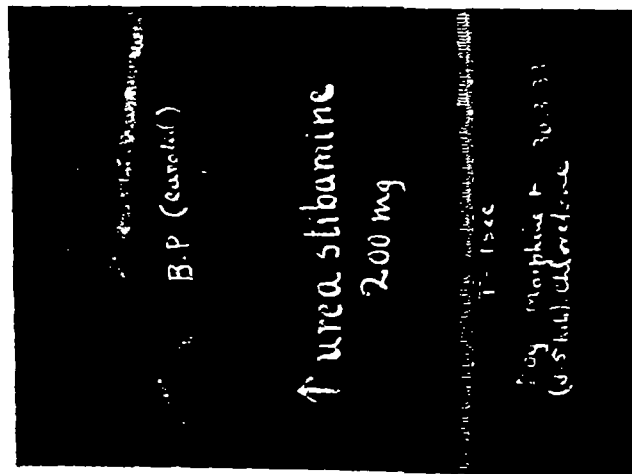 B.P (carotid)
↑ urea stibamine
200 mg
T = 1 sec
Dog Morphine + 30.3.37
chloretone